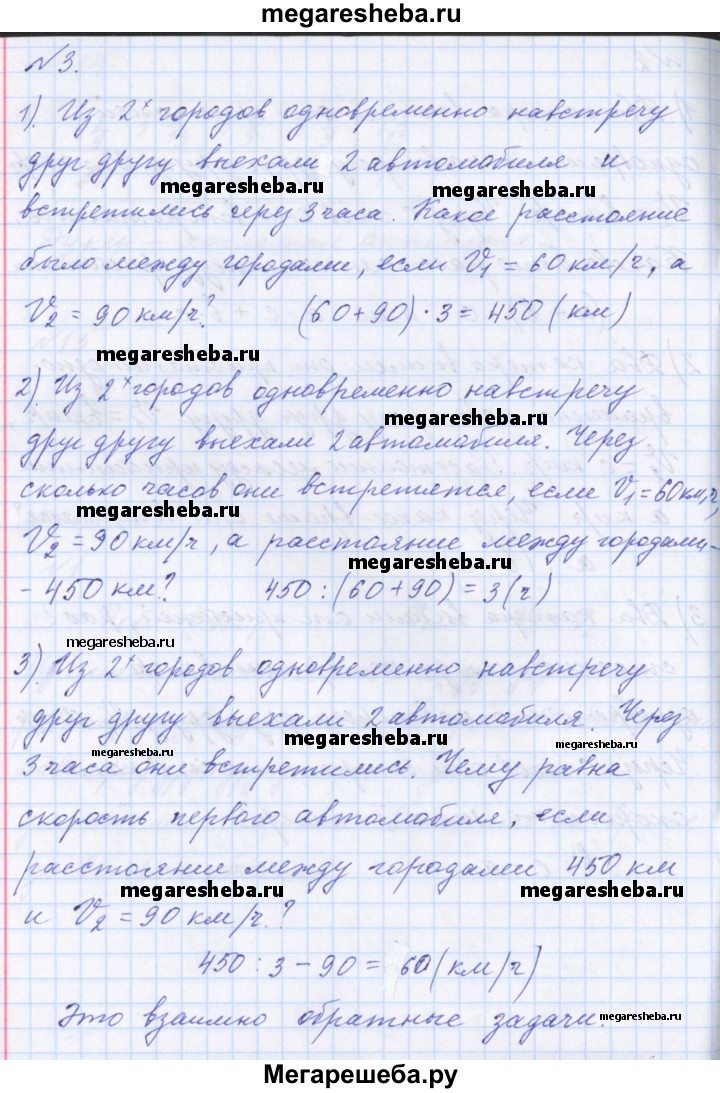 megaresheba.ru
№3.
1). Из 2х городов одновременно навстречу
друг другу выехали 2 автомобиля и
megaresheba.ru megaresheba.ru
встретились через 3 часа. Какое расстояние
было между городами, если V1 = 60 км/ч, а
V2 = 90 км/ч? (60+90)·3 = 450 (км)
megaresheba.ru
2). Из 2х городов одновременно навстречу
megaresheba.ru
друг другу выехали 2 автомобиля. Через
сколько часов они встретятся, если V1 = 60 км/ч,
megaresheba.ru
V2 = 90 км/ч, а расстояние между городами -
- 450 км? 450 : (60+90) = 3 (ч)
megaresheba.ru
3). Из 2х городов одновременно навстречу
друг другу выехали 2 автомобиля. Через
megaresheba.ru megaresheba.ru megaresheba.ru
3 часа они встретились. Чему равна
скорость первого автомобиля, если
расстояние между городами 450 км
megaresheba.ru megaresheba.ru
и V2 = 90 км/ч.?
450 : 3 - 90 = 60 (км/ч)
Это взаимно обратные задачи.
megaresheba.ru
Мегарешеба.ру